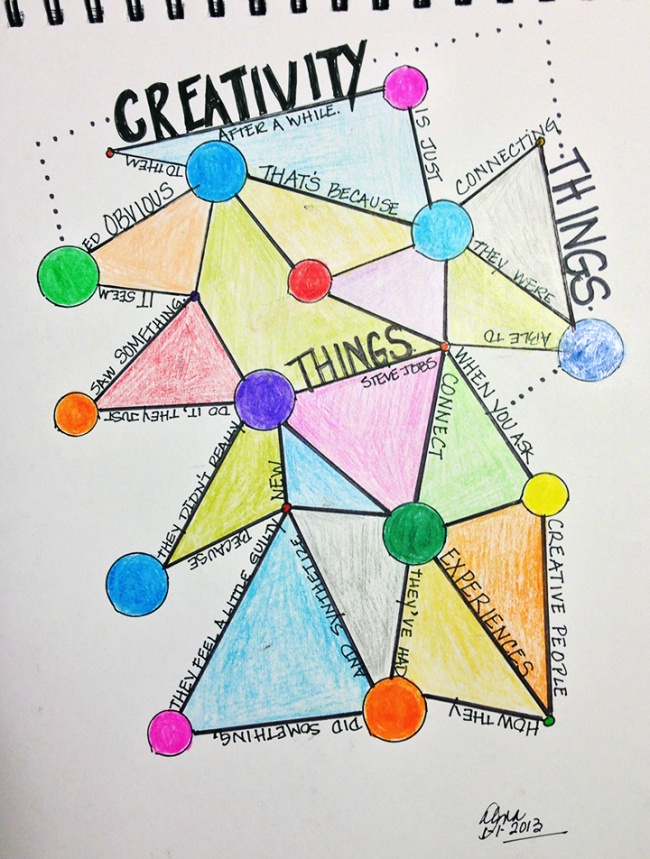 CREATIVITY
IS JUST
CONNECTING
THINGS.
WHEN YOU ASK
CREATIVE PEOPLE
HOW THEY
DID SOMETHING,
THEY FEEL A LITTLE GUILTY
BECAUSE
THEY DIDN'T REALLY
DO IT, THEY JUST
SAW SOMETHING
IT SEEM
ED OBVIOUS
TO THEM
AFTER A WHILE.
THAT'S BECAUSE
THEY WERE
ABLE TO
CONNECT
EXPERIENCES
THEY'VE HAD
AND SYNTHETIZE
NEW
THINGS.
STEVE JOBS
2013